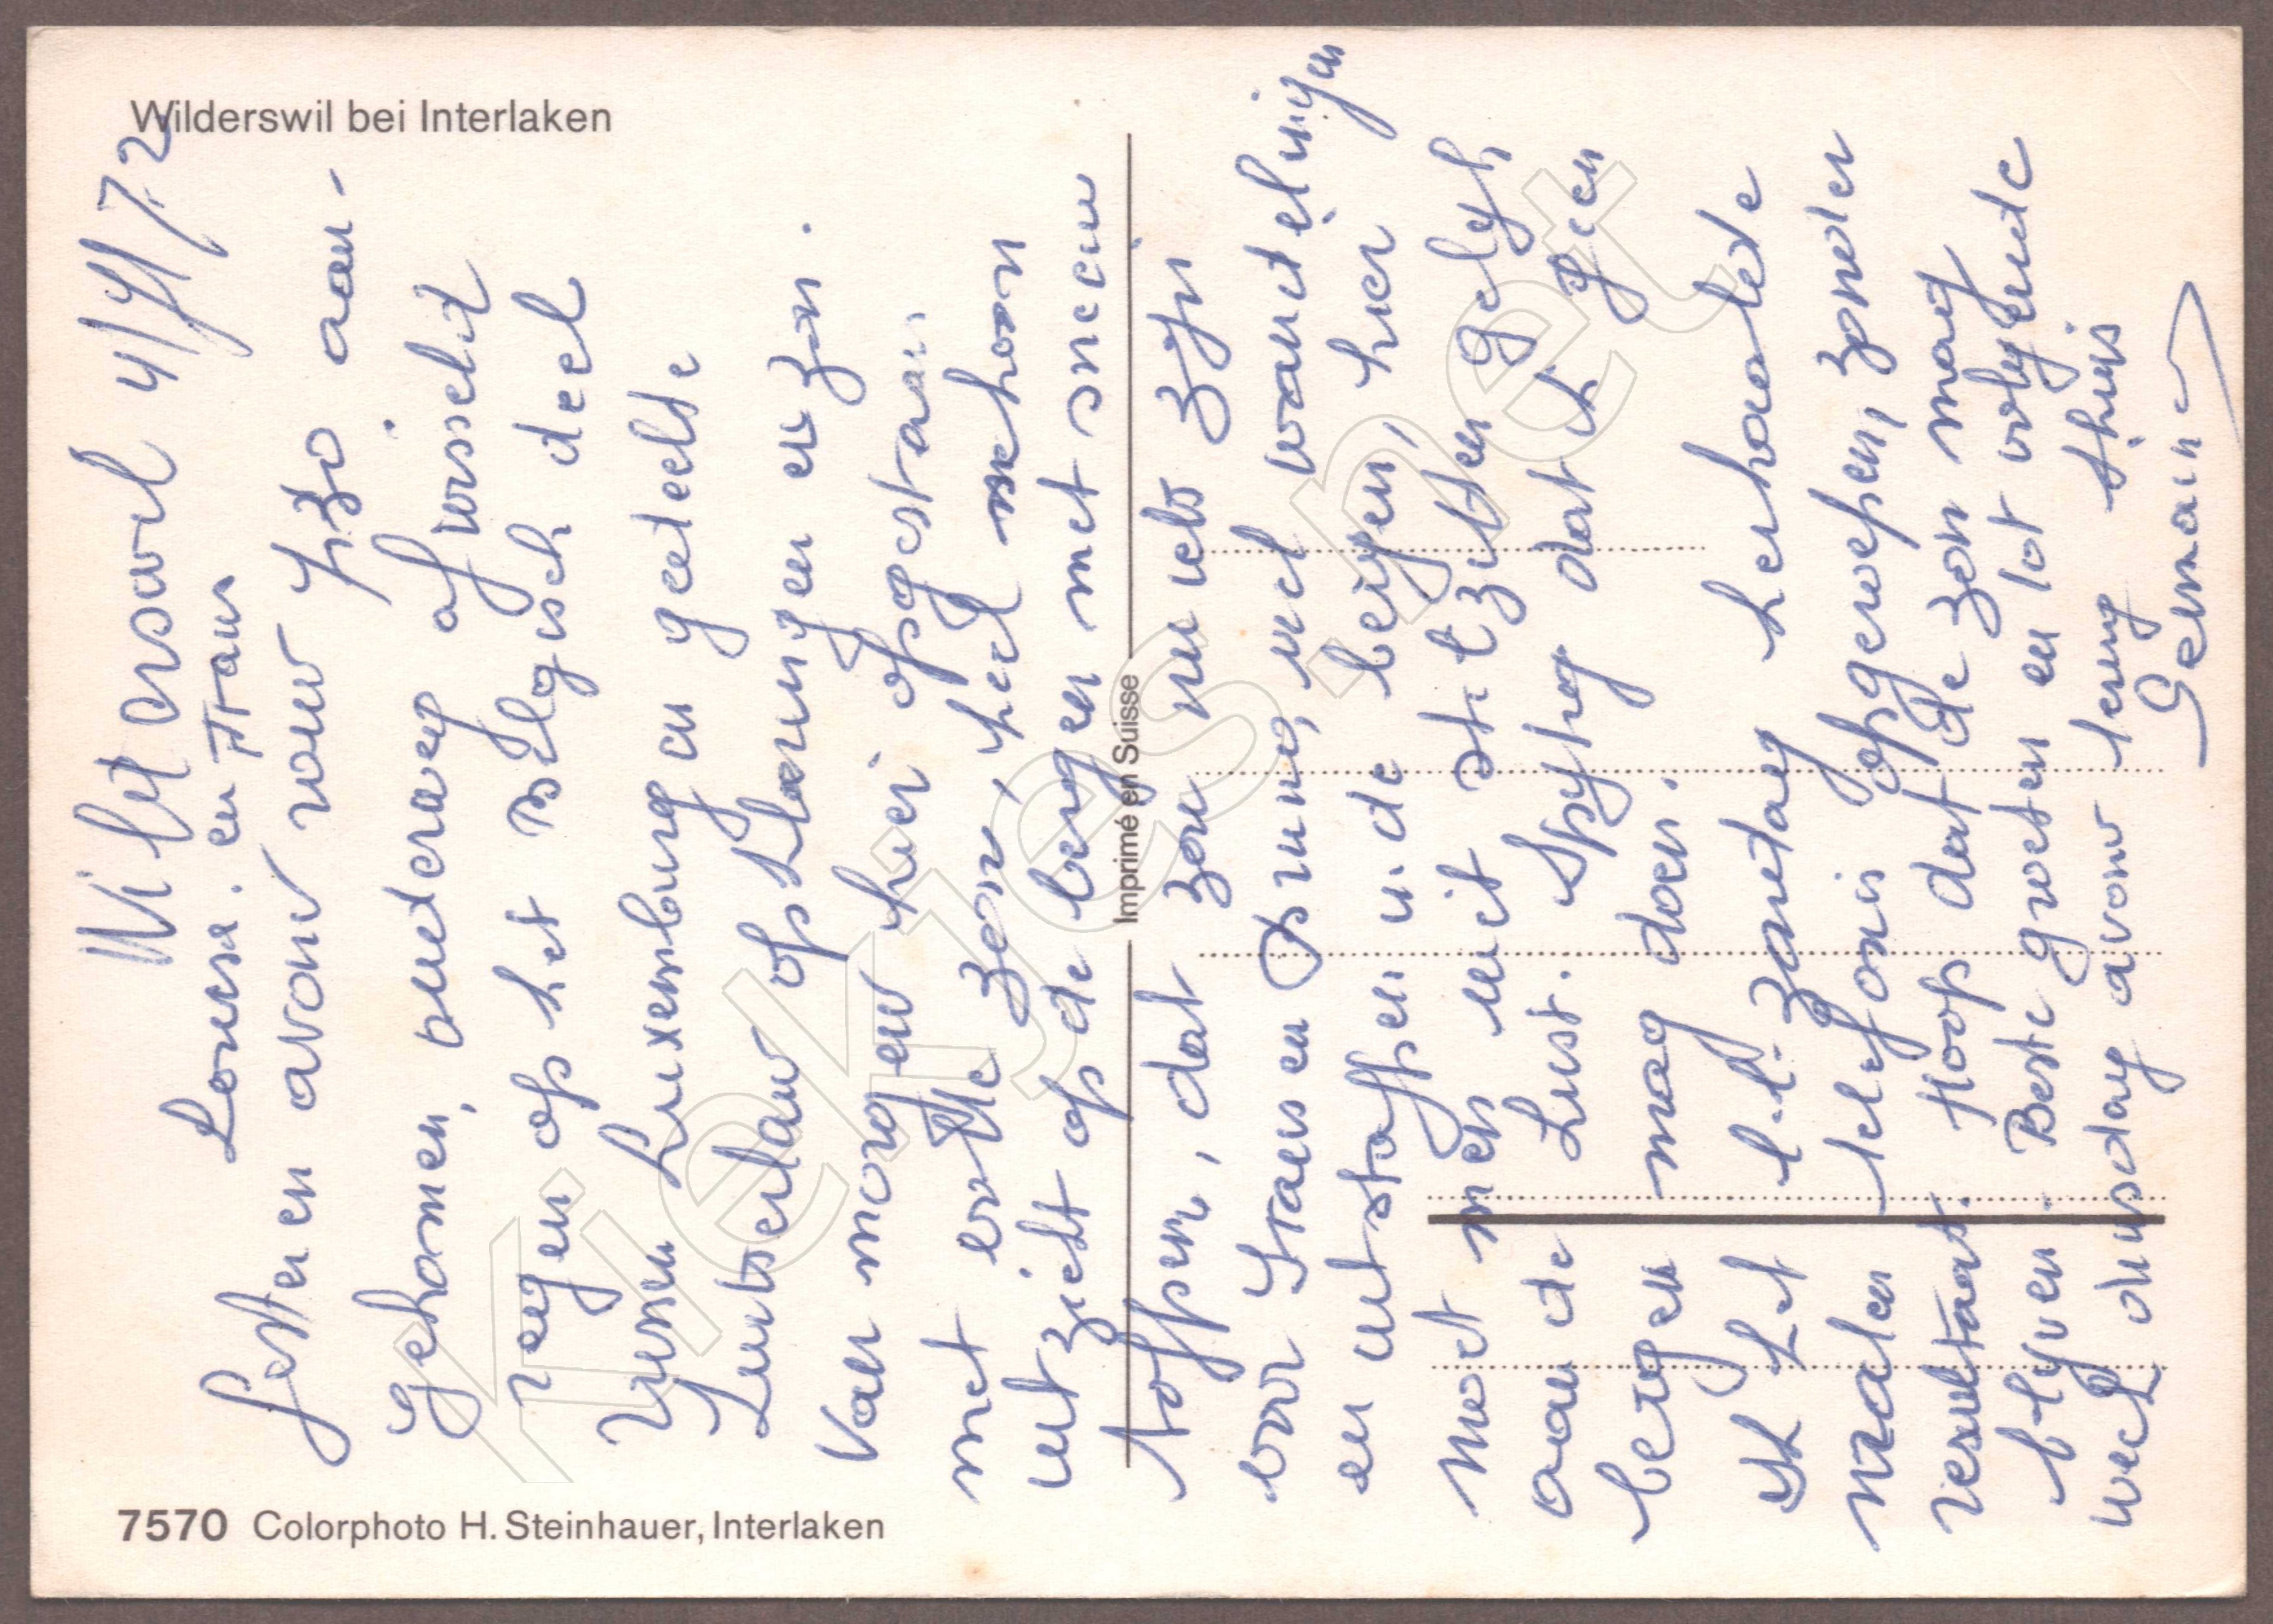 Wilderswil bei Interlaken
Wildersvil 4/7/72
Louisa en Frans
Gisteren avond rond h30 aan-
gekomen, onderweg afwisselend
regen op het Belgisch deel
Luxemburg en gedeelte
Zwitserland opklaringen en zon.
Van morgen hier opgestaan
met volle zon, heel schoon
uitzicht op de bergen met sneeuw
toppen, dat zou iets zijn
voor Frans en Bruno, veel wandelingen
en uitstappen in de bergen, hier
moet men niet stilzitten gelijk
aan de Kust. Spijtig dat ik geen
bergen mag doen.
Ik heb l.l. zondag herhaalde
malen telefonis opgeroepen, zonder
resultaat. Hoop dat de zon mag
blijven. Beste groeten en tot volgende
week dinsdag avond terug thuis
Germaine
Imprimé en Suisse
7570 Colorphoto H. Steinhauer, Interlaken